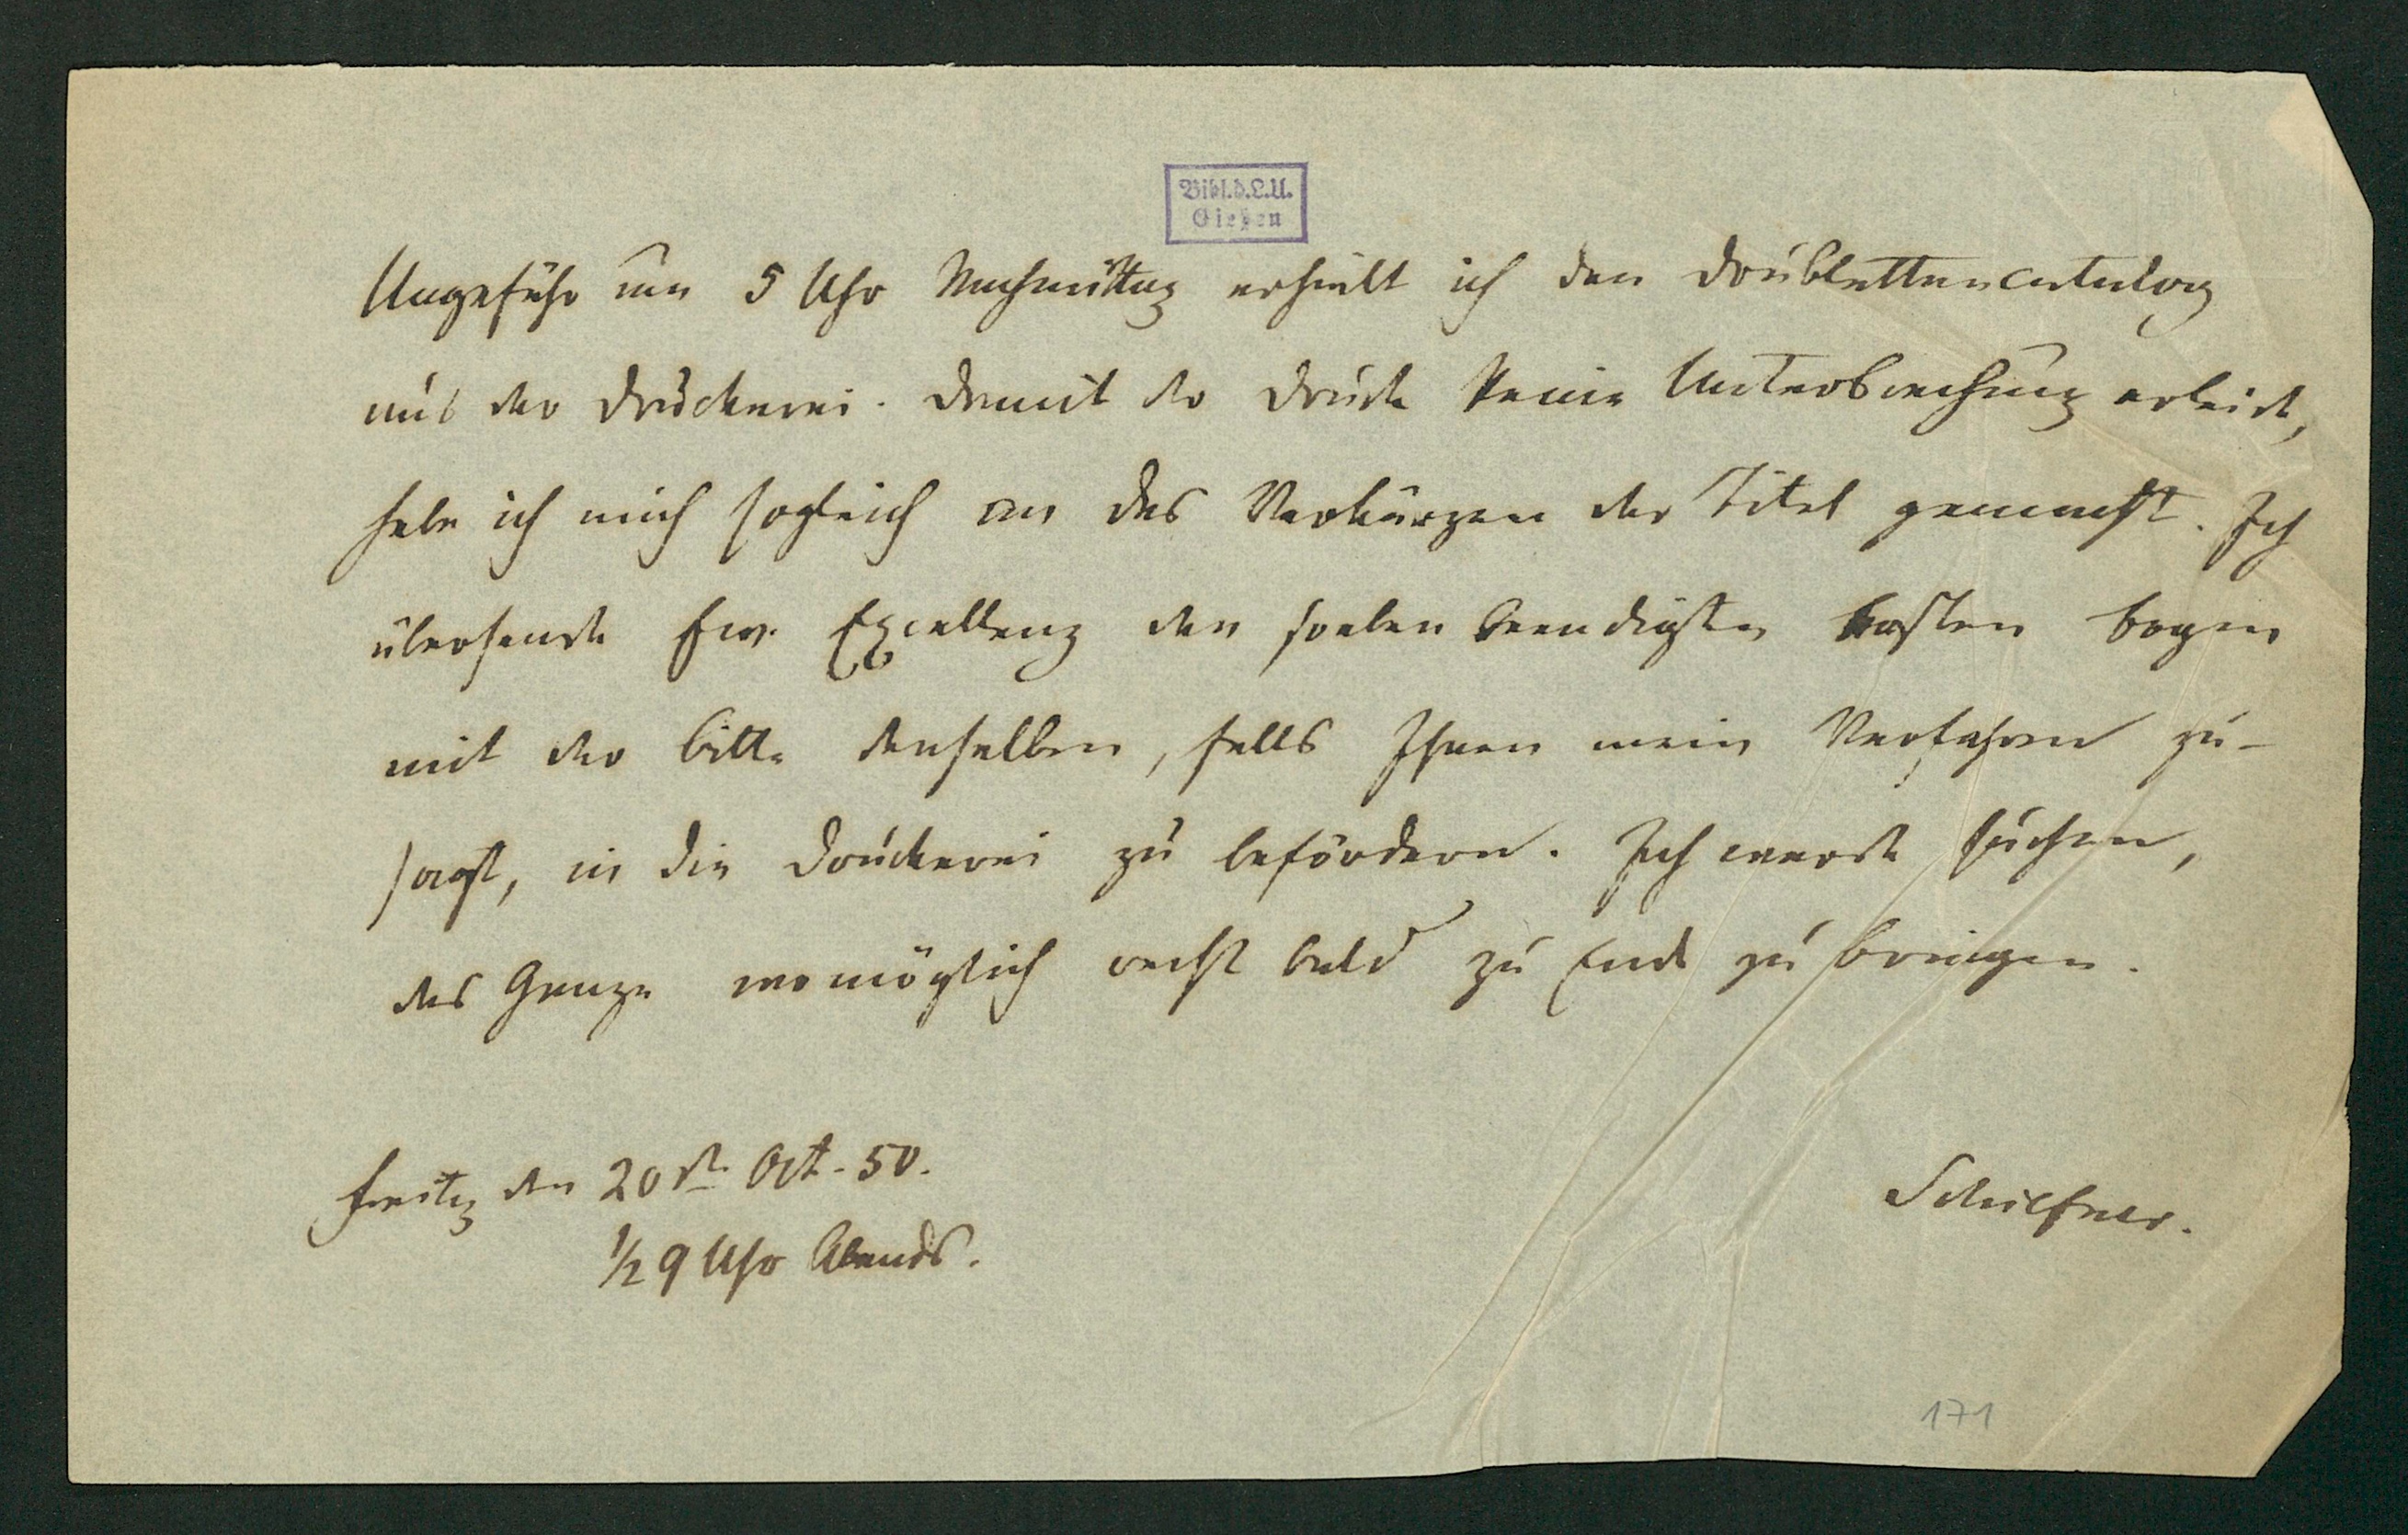 Bibl.d.L.U.
Gießen
Ungefähr um 5 Uhr Nachmittag erhielt ich den Doublettencatalog
aus der Druckerei. Damit der Druck keine Unterbrechung erleide,
habe ich mich sogleich an das Verkürzen der Titel gemacht. Ich
übersende Ew. Excellenz den soeben beendigten ersten Bogen
mit der Bitte denselben, falls Ihnen mein Verfahren zu-
sagt, in die Druckerei zu befördern. Ich werde suchen,
das Ganze womöglich recht bald zu Ende zu bringen.
Freitag den 20ste Oct. 50.
1/2 9 Uhr Abends.
Schiefner.
171